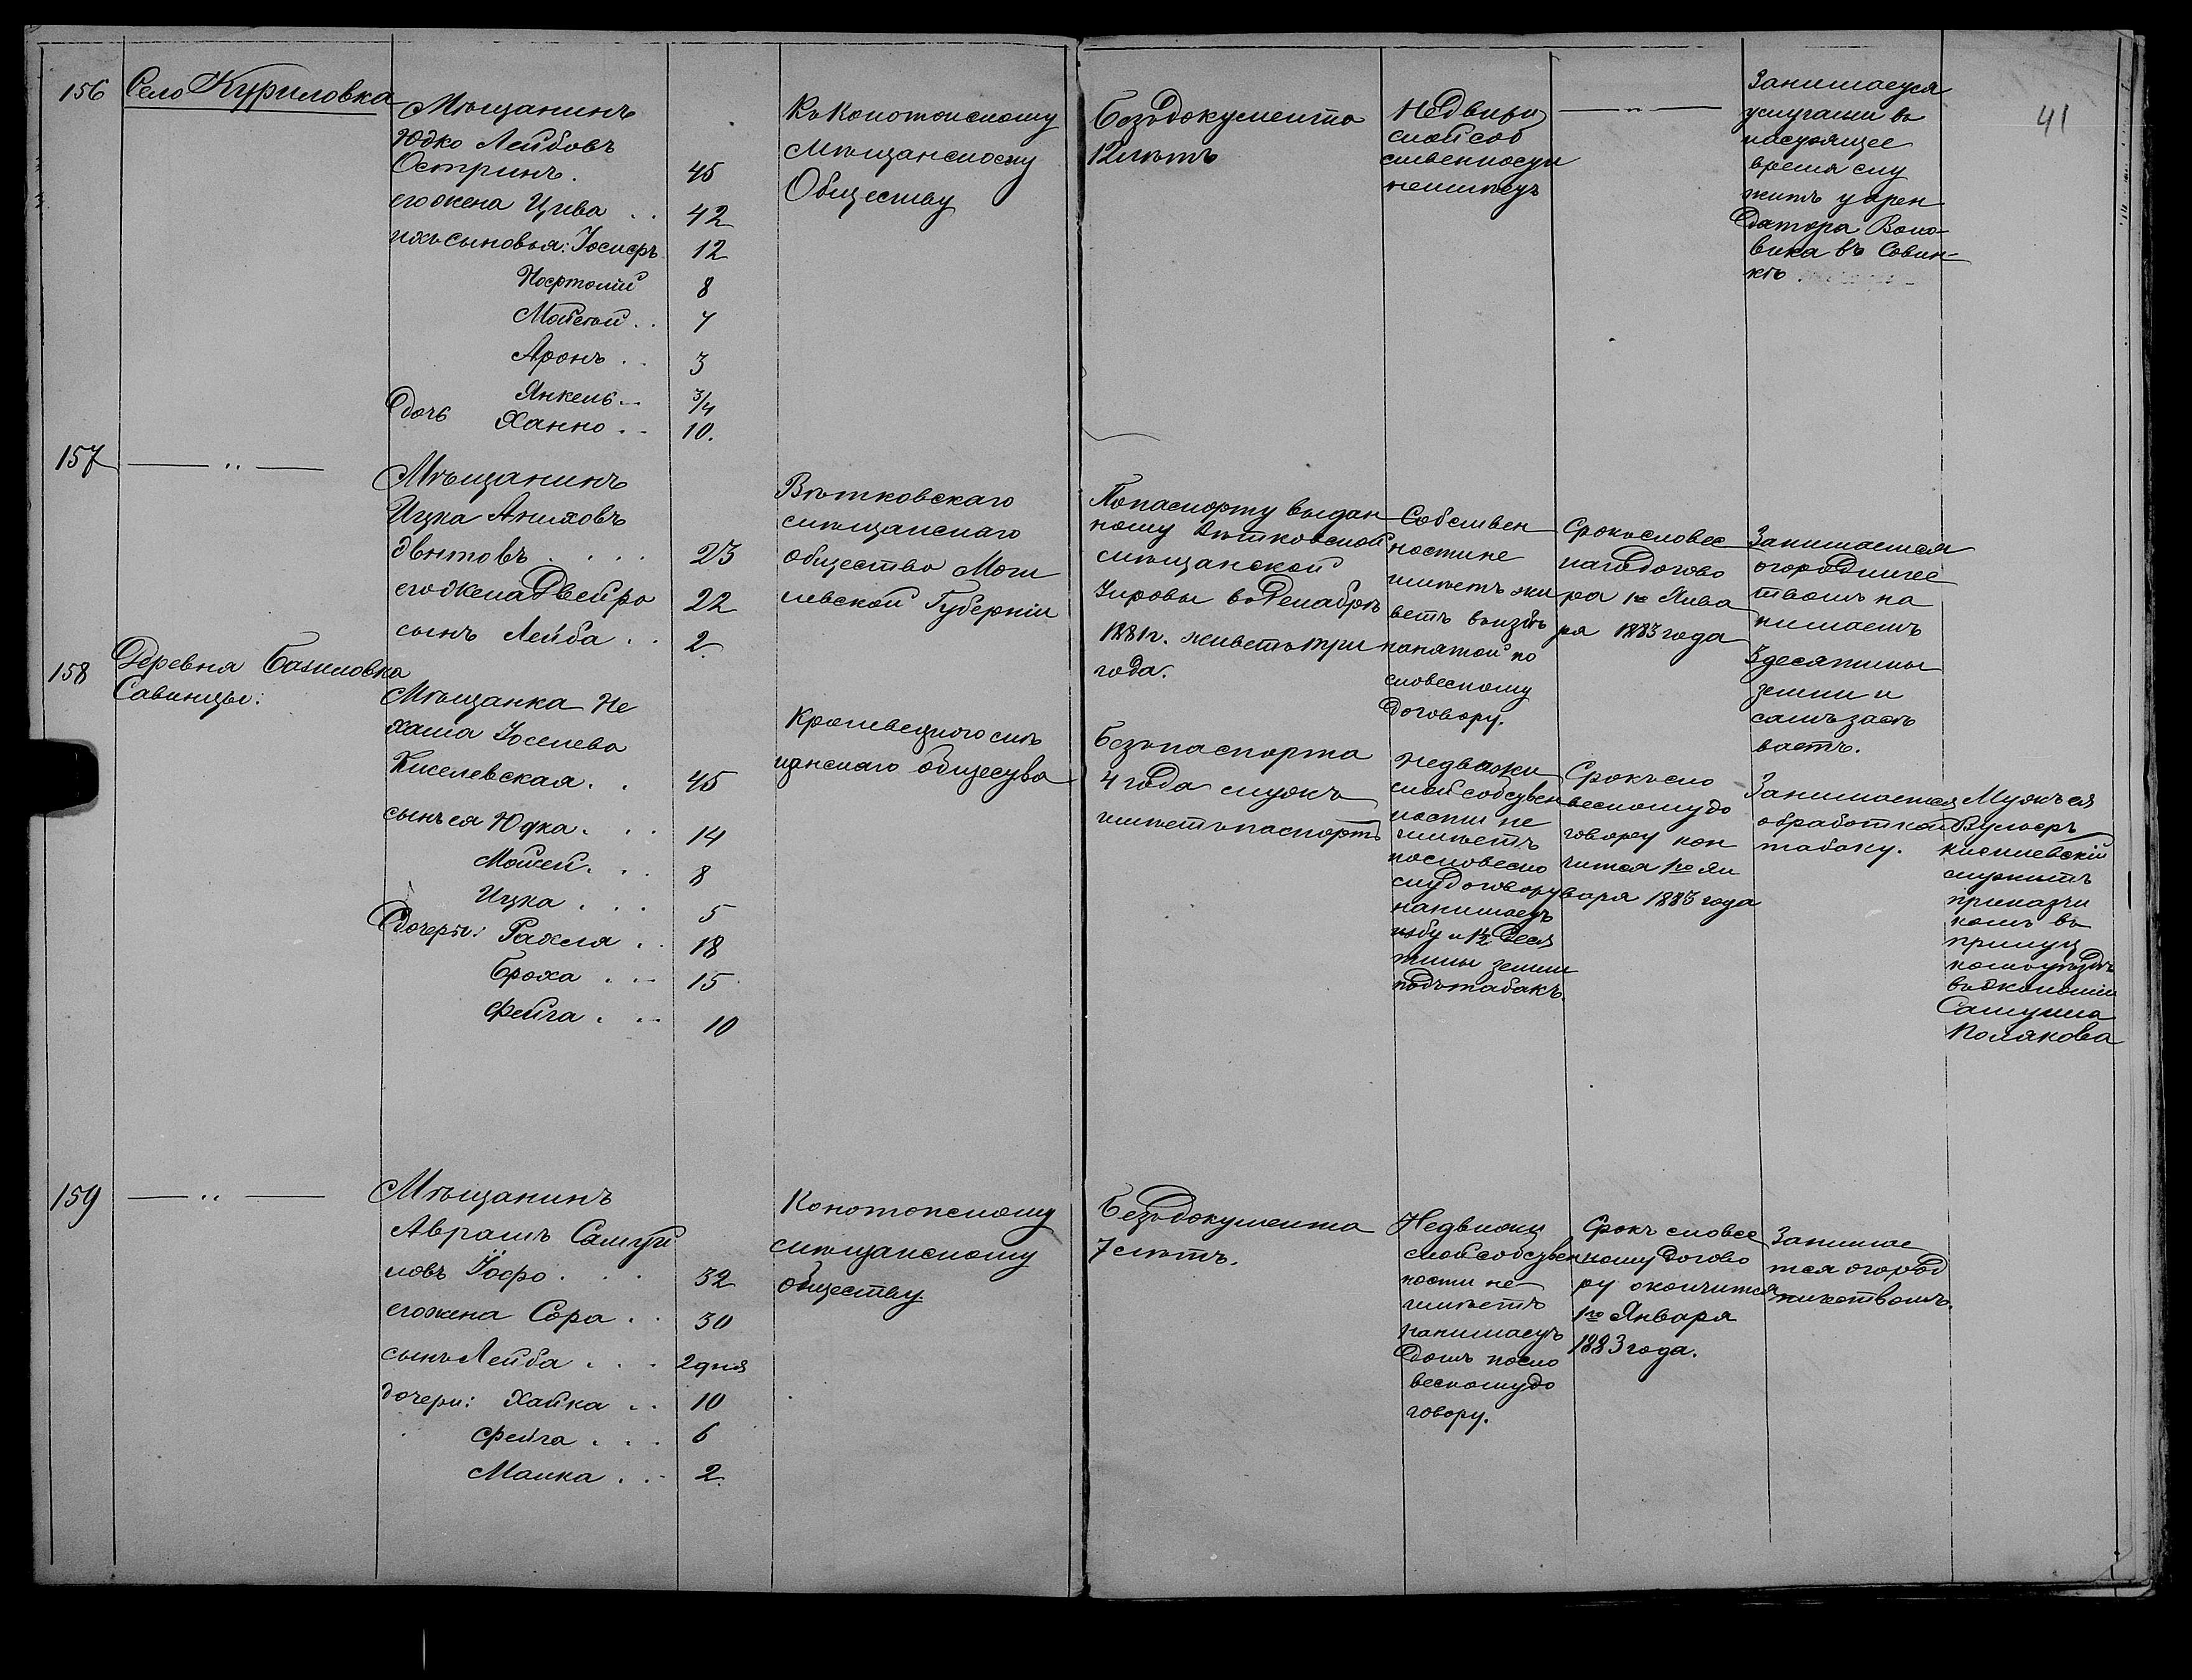 41
156
Село Куриловка
Мѣщанинъ
Юдко Лейбовъ
Остринъ.
45
его жена Цива . .
42
ихъ сыновья: Іосифъ
12
8
Мойсей . .
7
Аронъ . .
3
Янкель . .
3/4
дочь Ханно . .
10.
Къ Конотопскому
Мѣщанскому
Обществу
Безъ документа
12 лѣтъ
Недвижи
мой соб
ственности
неимѣетъ
— „ —
Занимается
услугами въ
настоящее
время слу
житъ у арен
датора Воло-
вика въ Совин-
кѣ
157
— „ —
Мѣщанинъ
Ицка
23
его жена Двейра
22
сынъ Лейба . .
2.
Вѣтковскаго
мѣщанскаго
общество Моги
левской Губерніи
По паспорту выдан
ному Вѣтковской
мѣщанской
Управы въ Декабрѣ
1881 г. живетъ три
года.
Собствен
ности не
имѣетъ жи
ветъ въ избѣ
нанятой по
словесному
договору.
Срокъ словес
наго догово
ра 1го Янва
ря 1883 года
Занимается
огородниче
твомъ на
нимаетъ
3 десятины
земли и
самъ засѣ
ваетъ.
158
Деревня Базиловка
Савинцы:
Мѣщанка Не
хама Іоселева
Киселевская . .
45
сынъ ея Юдка . . .
14
Мойсей . . .
8
Ицка . . .
5
Дочери: Рахля . .
18
Броха . . .
15
Фейга . . .
10
Кролевецкого мѣ
щанскаго общества
Безъ паспорта
4 года мужъ
имѣетъ паспортъ
Недважи
мой собствен
ности не
имѣетъ
по словесно
му договору
нанимаетъ
избу и 1½ деся
тины земли
подъ табакъ.
Срокъ сло
весному до
говору кон
чится 1го Ян
варя 1883 года
Занимается
обработкой
табаку.
Мужъ ея
Вульфъ
Киселевскій
служитъ
приказчи
комъ въ
Прилуц
комъ уѣздѣ
въ экономіи
Самуила
Полякова
159
— „ —
Мѣщанинъ
Аврамъ Самуи
ловъ Іофо . . .
32
его жена Сора . .
30
сынъ Лейба . . .
2 дня
дочери: Хайка . .
10
Фейга . . .
6
Малка . . .
2.
Конотопскому
мѣщанскому
обществу.
Безъ документа
7 лѣтъ.
Недвижи
мой собствен
ности не
имѣетъ
нанимаетъ
домъ посло
весному до
говору.
Срокъ словес
ному догово
ру окончится
1го Января
1883 года.
Занимае
тся огород
ничествомъ.